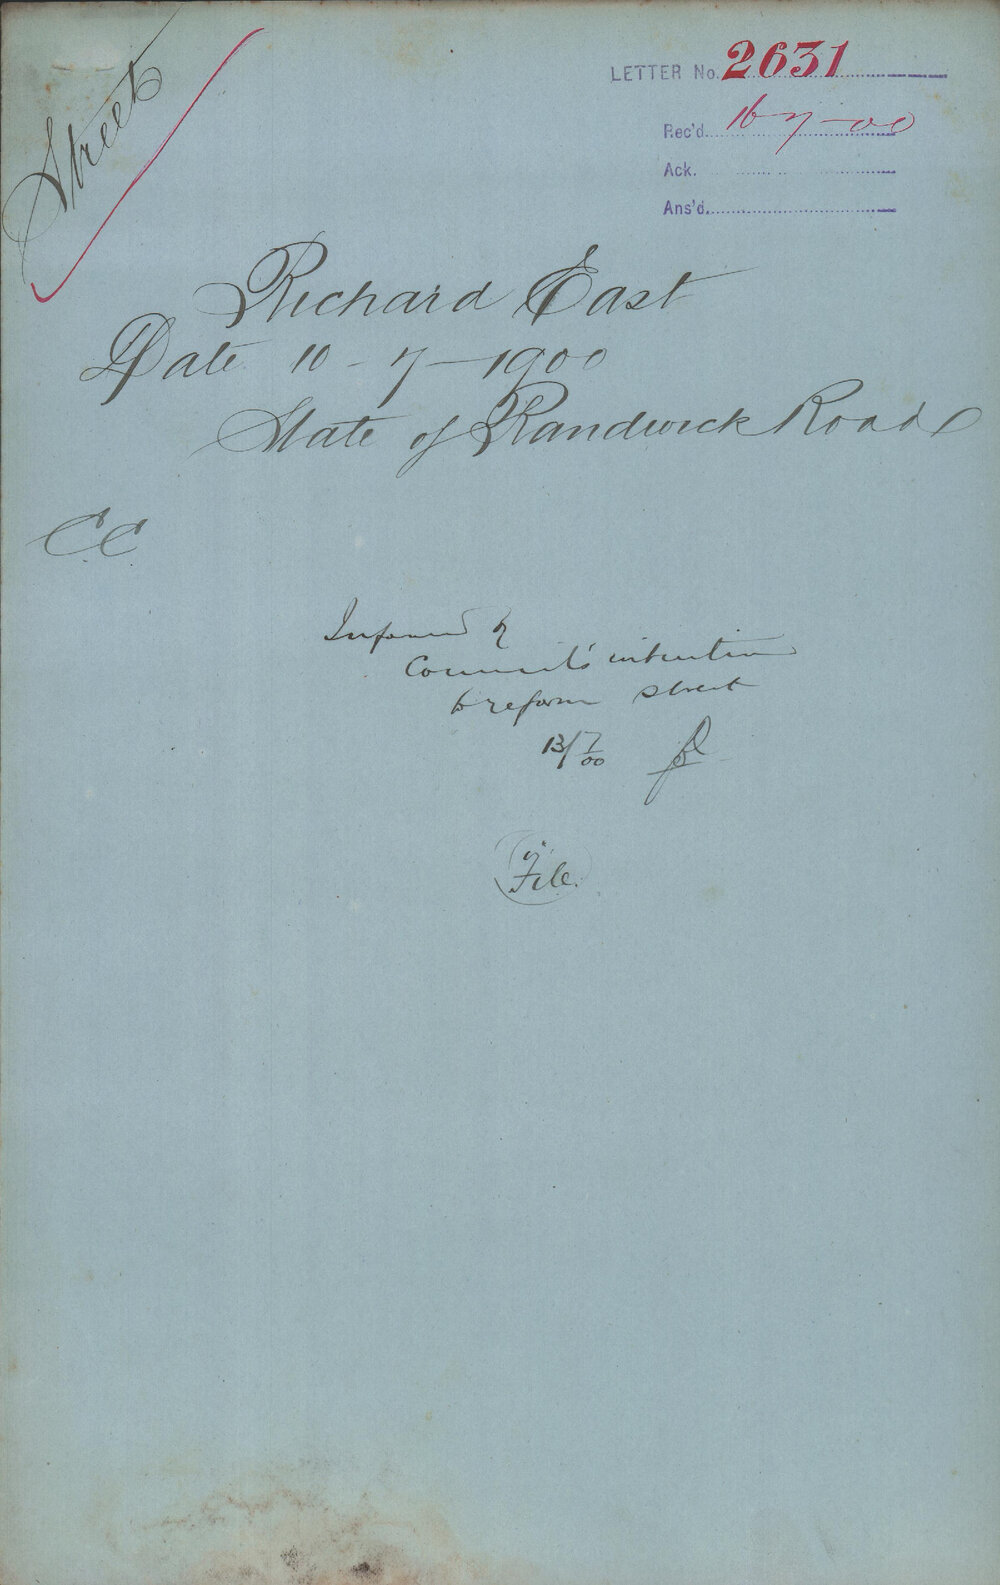 Street
LETTER No. 2631
Rec'd. 16-7-00
Ack.
Ans'd.
Richard East
Date 10-7-1900
State of Randwick Road
CC
Informed of
Council's intention
to reform street
13/7/00
File.